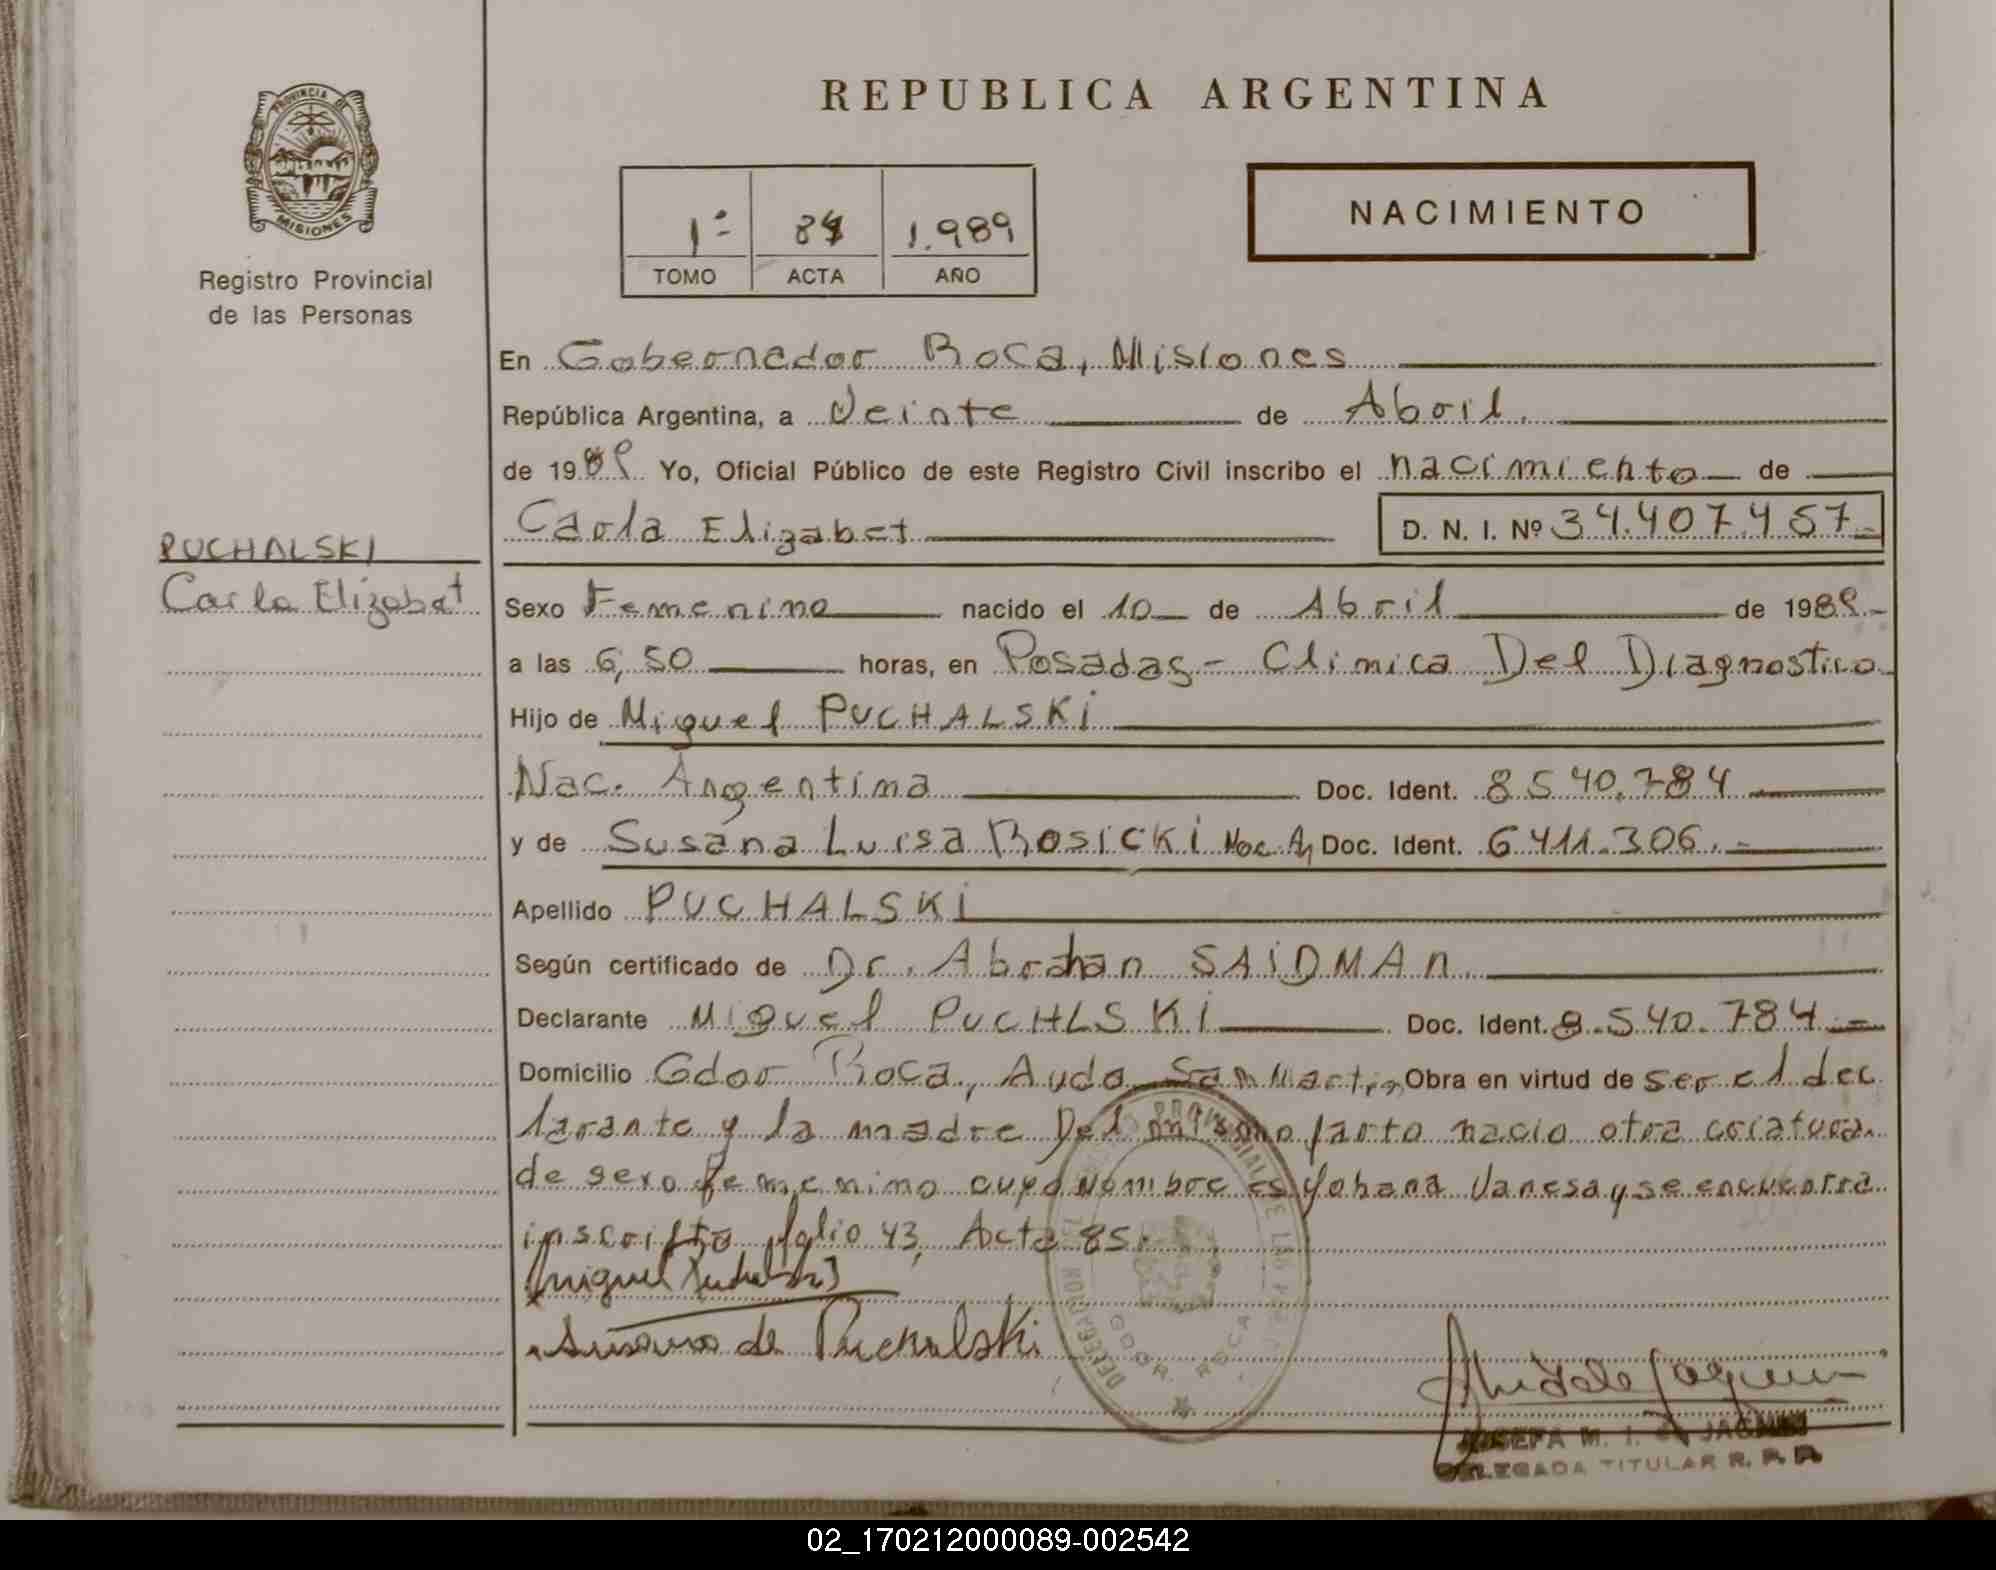 REPUBLICA ARGENTINA
PROVINCIA DE
MISIONES
Registro Provincial
de las Personas
1º 84 1.989
TOMO ACTA AÑO
NACIMIENTO
En Gobernador Roca, Misiones
República Argentina, a Veinte de Abril.
de 1989 Yo, Oficial Público de este Registro Civil inscribo el nacimiento de
Carla Elizabet D. N. I. Nº 34.407.457.-
PUCHALSKI
Carla Elizabet
Sexo Femenino nacido el 10 de Abril de 1989.-
a las 6,50 horas, en Posadas - Clinica Del Diagnostico
Hijo de Miguel PUCHALSKI
Nac. Argentina Doc. Ident. 8.540.784
y de Susana Luisa ROSICKI Nac. A, Doc. Ident. 6.411.306.-
Apellido PUCHALSKI
Según certificado de Dr. Abrahan SAIDMAN.
Declarante Miguel PUCHLSKI Doc. Ident. 8.540.784.-
Domicilio Gdor Roca, Avda San Martin Obra en virtud de ser el dec
larante y la madre Del mismo parto nacio otra criatura
de sexo femenino cuyo nombre es Yohana Vanesa y se encuentra
inscripta folio 43, Acta 85.
Miguel Puchalski
Susana de Puchalski
DELEGACION
GDOR. ROCA
JOSEFA M. I. de JAQUIN
DELEGADA TITULAR R. P. P.
02_170212000089-002542